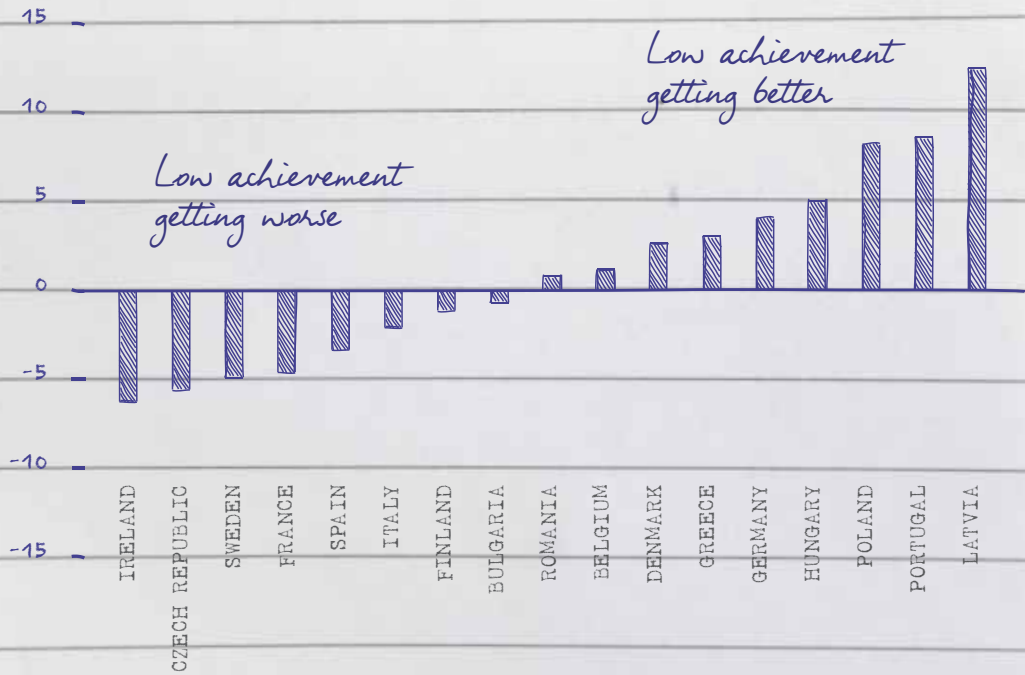 15
Low achievement
getting better
10
Low achievement
getting worse
5
0
-5
-10
-15
IRELAND
CZECH REPUBLIC
SWEDEN
FRANCE
SPAIN
ITALY
FINLAND
BULGARIA
ROMANIA
BELGIUM
DENMARK
GREECE
GERMANY
HUNGARY
POLAND
PORTUGAL
LATVIA